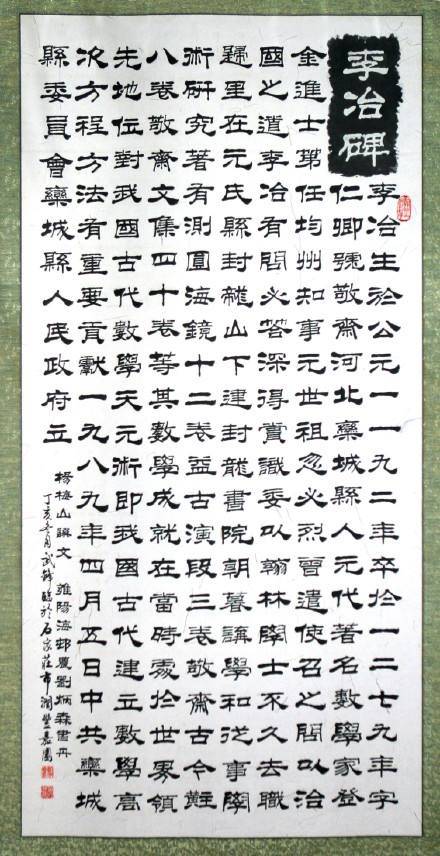 李冶碑
李冶生於公元一一九二年卒於一二七九年字
仁卿號敬齋河北欒城縣人元代著名數學家登
金進士第任均州知事元世祖忽必烈曾遣使召之問以治
國之道李冶有問必答深得賞識委以翰林學士不久去職
歸里在元氏縣封龍山下建封龍書院朝暮講學和從事學
術研究著有測圓海鏡十二卷益古演段三卷敬齋古今黈
八卷敬齋文集四十卷等其數學成就在當時處於世界領
先地位對我國古代數學天元術即我國古代建立數學高
次方程方法有重要貢獻一九八九年四月五日中共欒城
縣委員會欒城縣人民政府立
楊梅山撰文 雒陽海邨農劉炳森書丹
丁亥冬月武 臨於石家莊市潤 嘉園